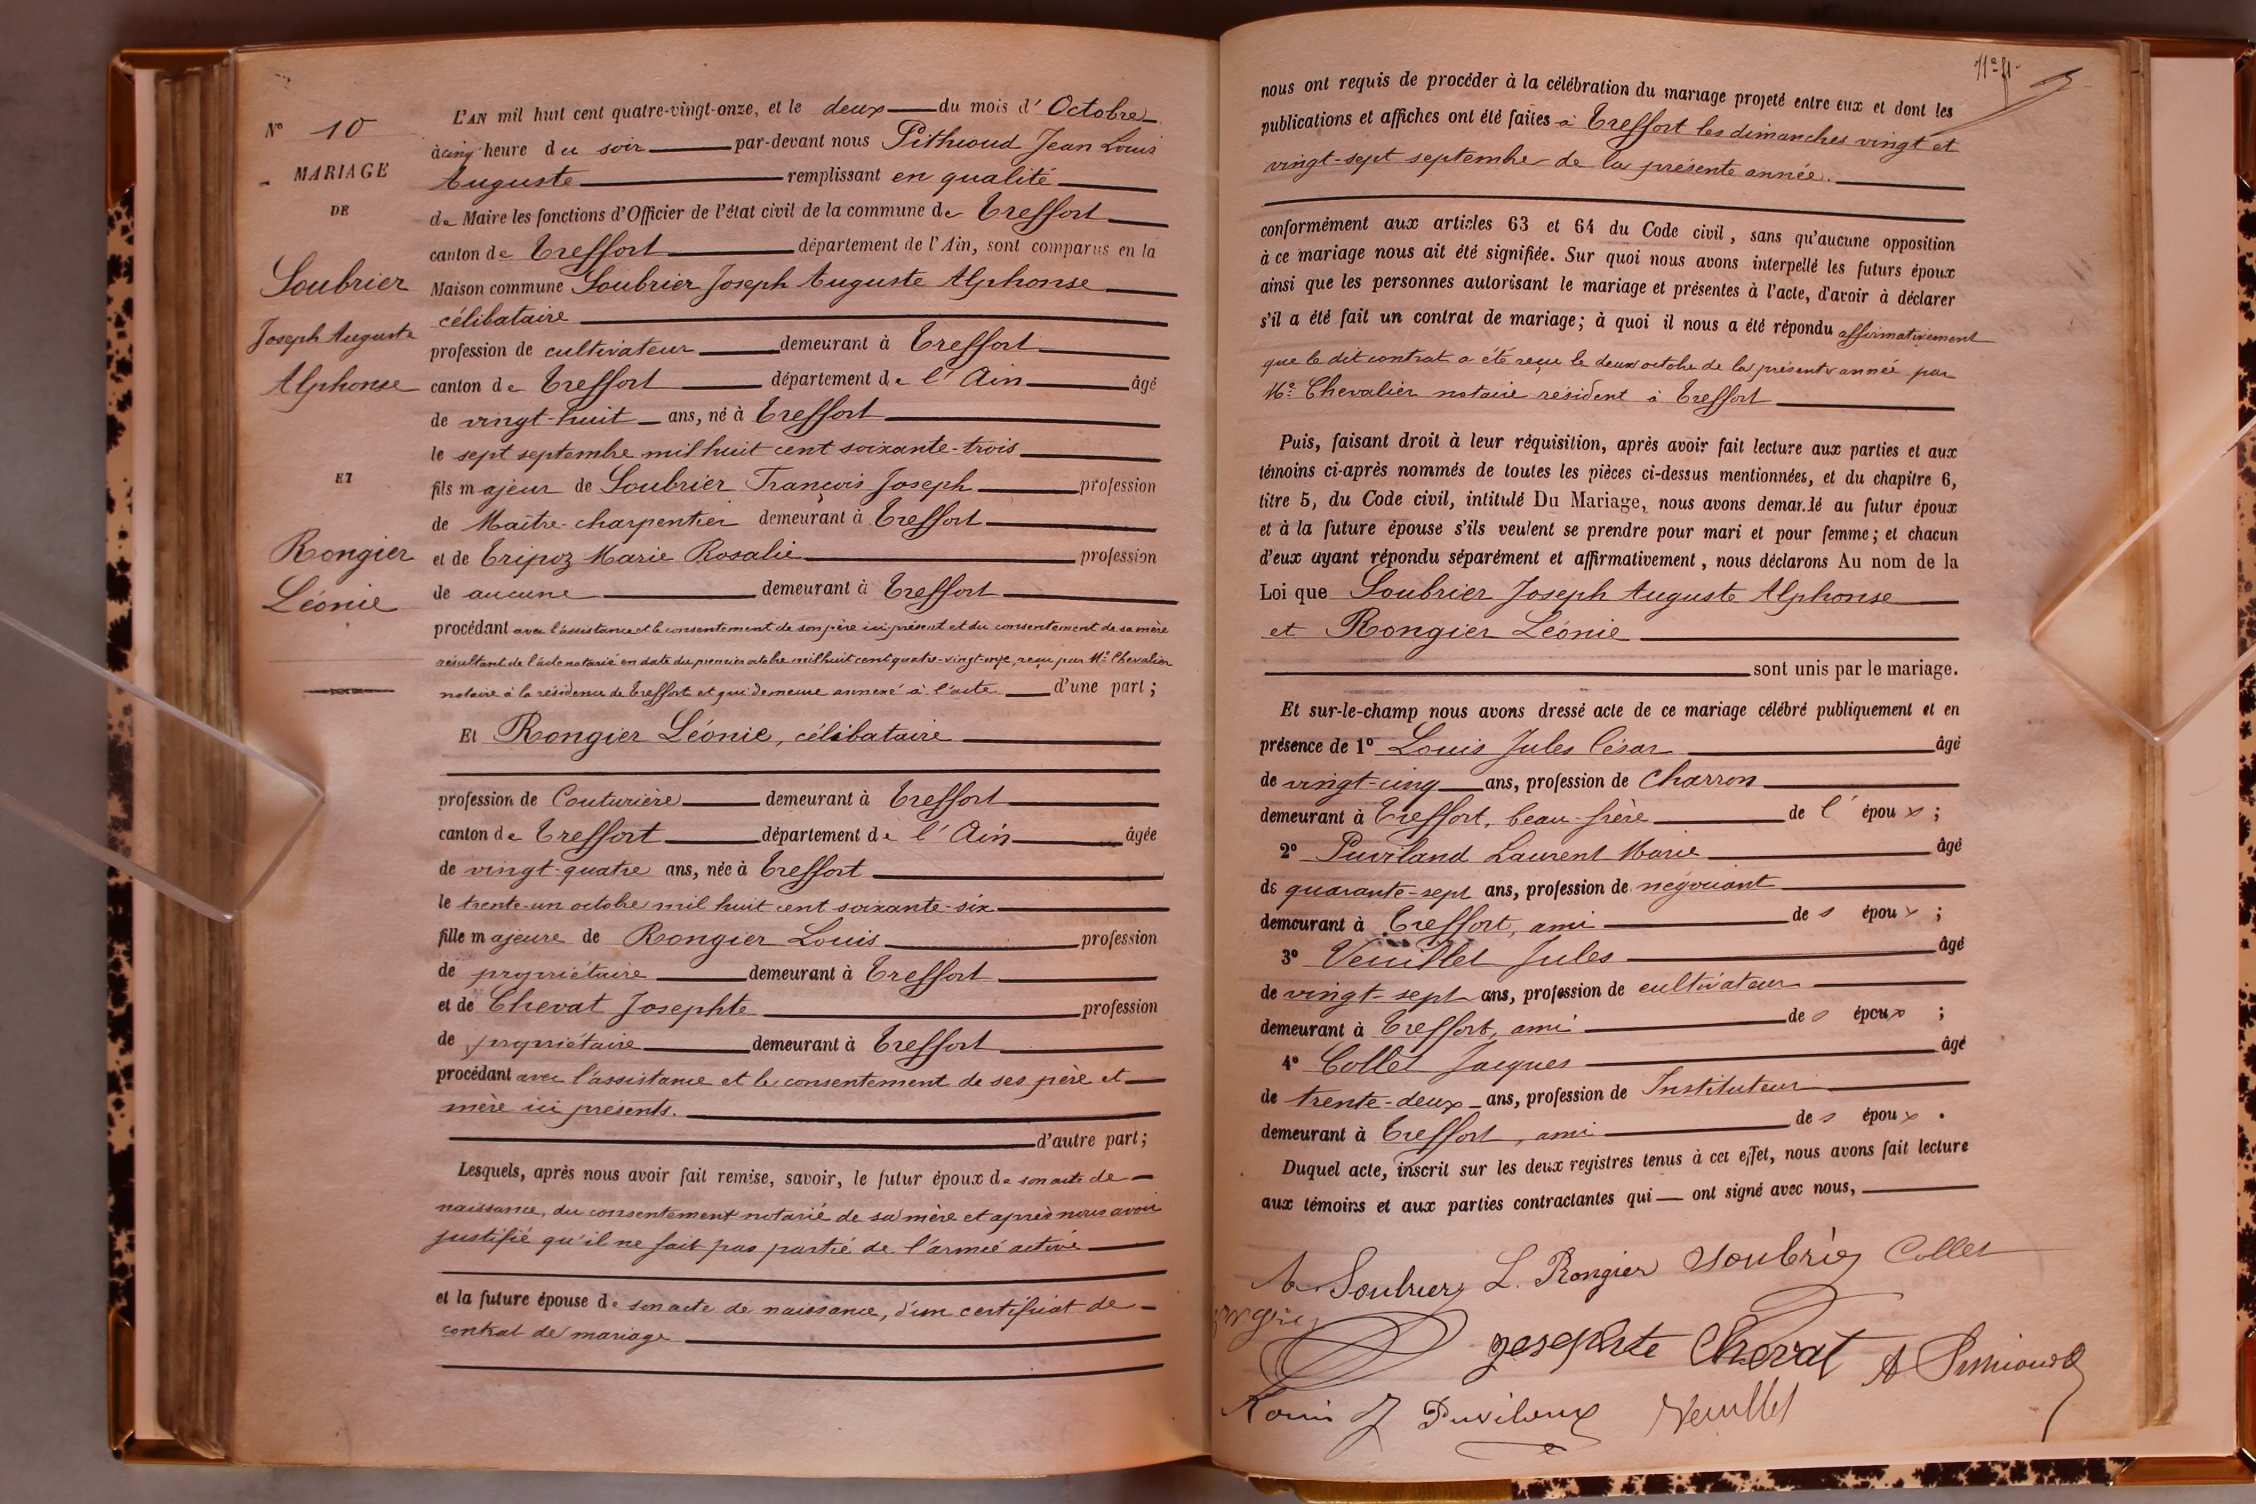 N° 10
MARIAGE
DE
Soubrier
Joseph Auguste
Alphonse
ET
Rongier
Léonie
L'AN mil huit cent quatre-vingt-onze, et le deux du mois d'Octobre
à cinq heure du soir par-devant nous Pithioud Jean Louis
Auguste remplissant en qualité
de Maire les fonctions d'Officier de l'état civil de la commune de Treffort
canton de Treffort département de l'Ain, sont comparus en la
Maison commune Soubrier Joseph Auguste Alphonse
célibataire
profession de cultivateur demeurant à Treffort
canton de Treffort département de l'Ain âgé
de vingt-huit ans, né à Treffort
le sept septembre mil huit cent soixante-trois
fils majeur de Soubrier François Joseph profession
de Maître-charpentier demeurant à Treffort
et de Tripoz Marie Rosalie profession
de aucune demeurant à Treffort
procédant avec l'assistance et le consentement de son père ici présent et du consentement de sa mère
résultant de l'acte notarié en date du premier octobre mil huit cent quatre-vingt-onze, reçu par Me Chevalier
notaire à la résidence de Treffort et qui demeure annexé à l'acte d'une part ;
Et Rongier Léonie, célibataire
profession de Couturière demeurant à Treffort
canton de Treffort département de l'Ain âgée
de vingt-quatre ans, née à Treffort
le trente-un octobre mil huit cent soixante-six
fille majeure de Rongier Louis profession
de propriétaire demeurant à Treffort
et de Chevat Josephte profession
de propriétaire demeurant à Treffort
procédant avec l'assistance et le consentement de ses père et
mère ici présents.
d'autre part ;
Lesquels, après nous avoir fait remise, savoir, le futur époux de son acte de
naissance, du consentement notarié de sa mère et après nous avoir
justifié qu'il ne fait pas partie de l'armée active
et la future épouse de son acte de naissance, d'un certificat de
contrat de mariage
nous ont requis de procéder à la célébration du mariage projeté entre eux et dont les
publications et affiches ont été faites à Treffort les dimanches vingt et
vingt-sept septembre de la présente année.
conformément aux articles 63 et 64 du Code civil, sans qu'aucune opposition
à ce mariage nous ait été signifiée. Sur quoi nous avons interpellé les futurs époux
ainsi que les personnes autorisant le mariage et présentes à l'acte, d'avoir à déclarer
s'il a été fait un contrat de mariage ; à quoi il nous a été répondu affirmativement
que le dit contrat a été reçu le deux octobre de la présente année par
Me Chevalier notaire résident à Treffort
Puis, faisant droit à leur réquisition, après avoir fait lecture aux parties et aux
témoins ci-après nommés de toutes les pièces ci-dessus mentionnées, et du chapitre 6,
titre 5, du Code civil, intitulé Du Mariage, nous avons demandé au futur époux
et à la future épouse s'ils veulent se prendre pour mari et pour femme ; et chacun
d'eux ayant répondu séparément et affirmativement, nous déclarons Au nom de la
Loi que Soubrier Joseph Auguste Alphonse
et Rongier Léonie
sont unis par le mariage.
Et sur-le-champ nous avons dressé acte de ce mariage célébré publiquement et en
présence de 1° Louis Jules César âgé
de vingt-cinq ans, profession de Charron
demeurant à Treffort, beau-frère de l'époux ;
2° Puvilland Laurent Marie âgé
de quarante-sept ans, profession de négociant
demeurant à Treffort, ami des époux ;
3° Veuillet Jules âgé
de vingt-sept ans, profession de cultivateur
demeurant à Treffort, ami des époux ;
4° Collet Jacques âgé
de trente-deux ans, profession de Instituteur
demeurant à Treffort, ami des époux.
Duquel acte, inscrit sur les deux registres tenus à cet effet, nous avons fait lecture
aux témoins et aux parties contractantes qui ont signé avec nous,
A Soubrier L. Rongier Soubrier Collet
Josephte Chevat
Louis J Veuillet